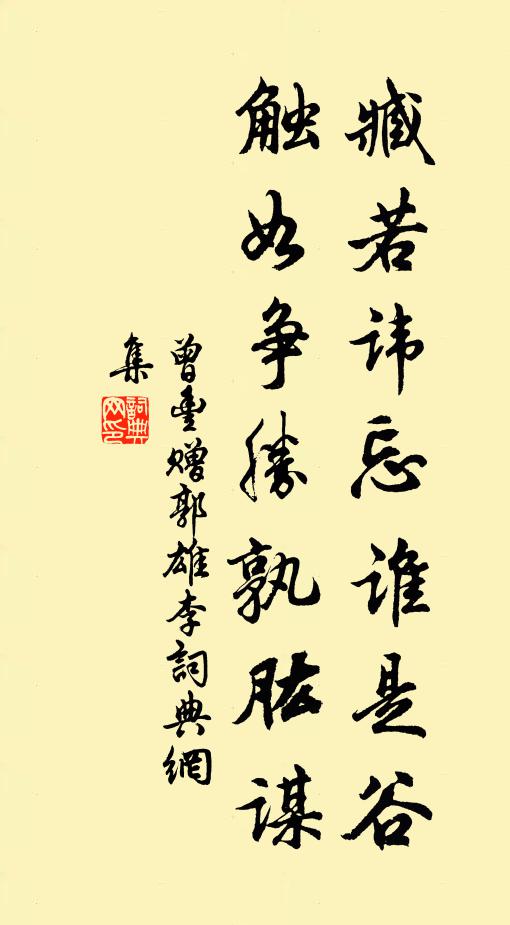 臧若讳忘谁是谷
触如争勝孰肱谋
曾豊赠郭雄李詞典網
集
詞典網印